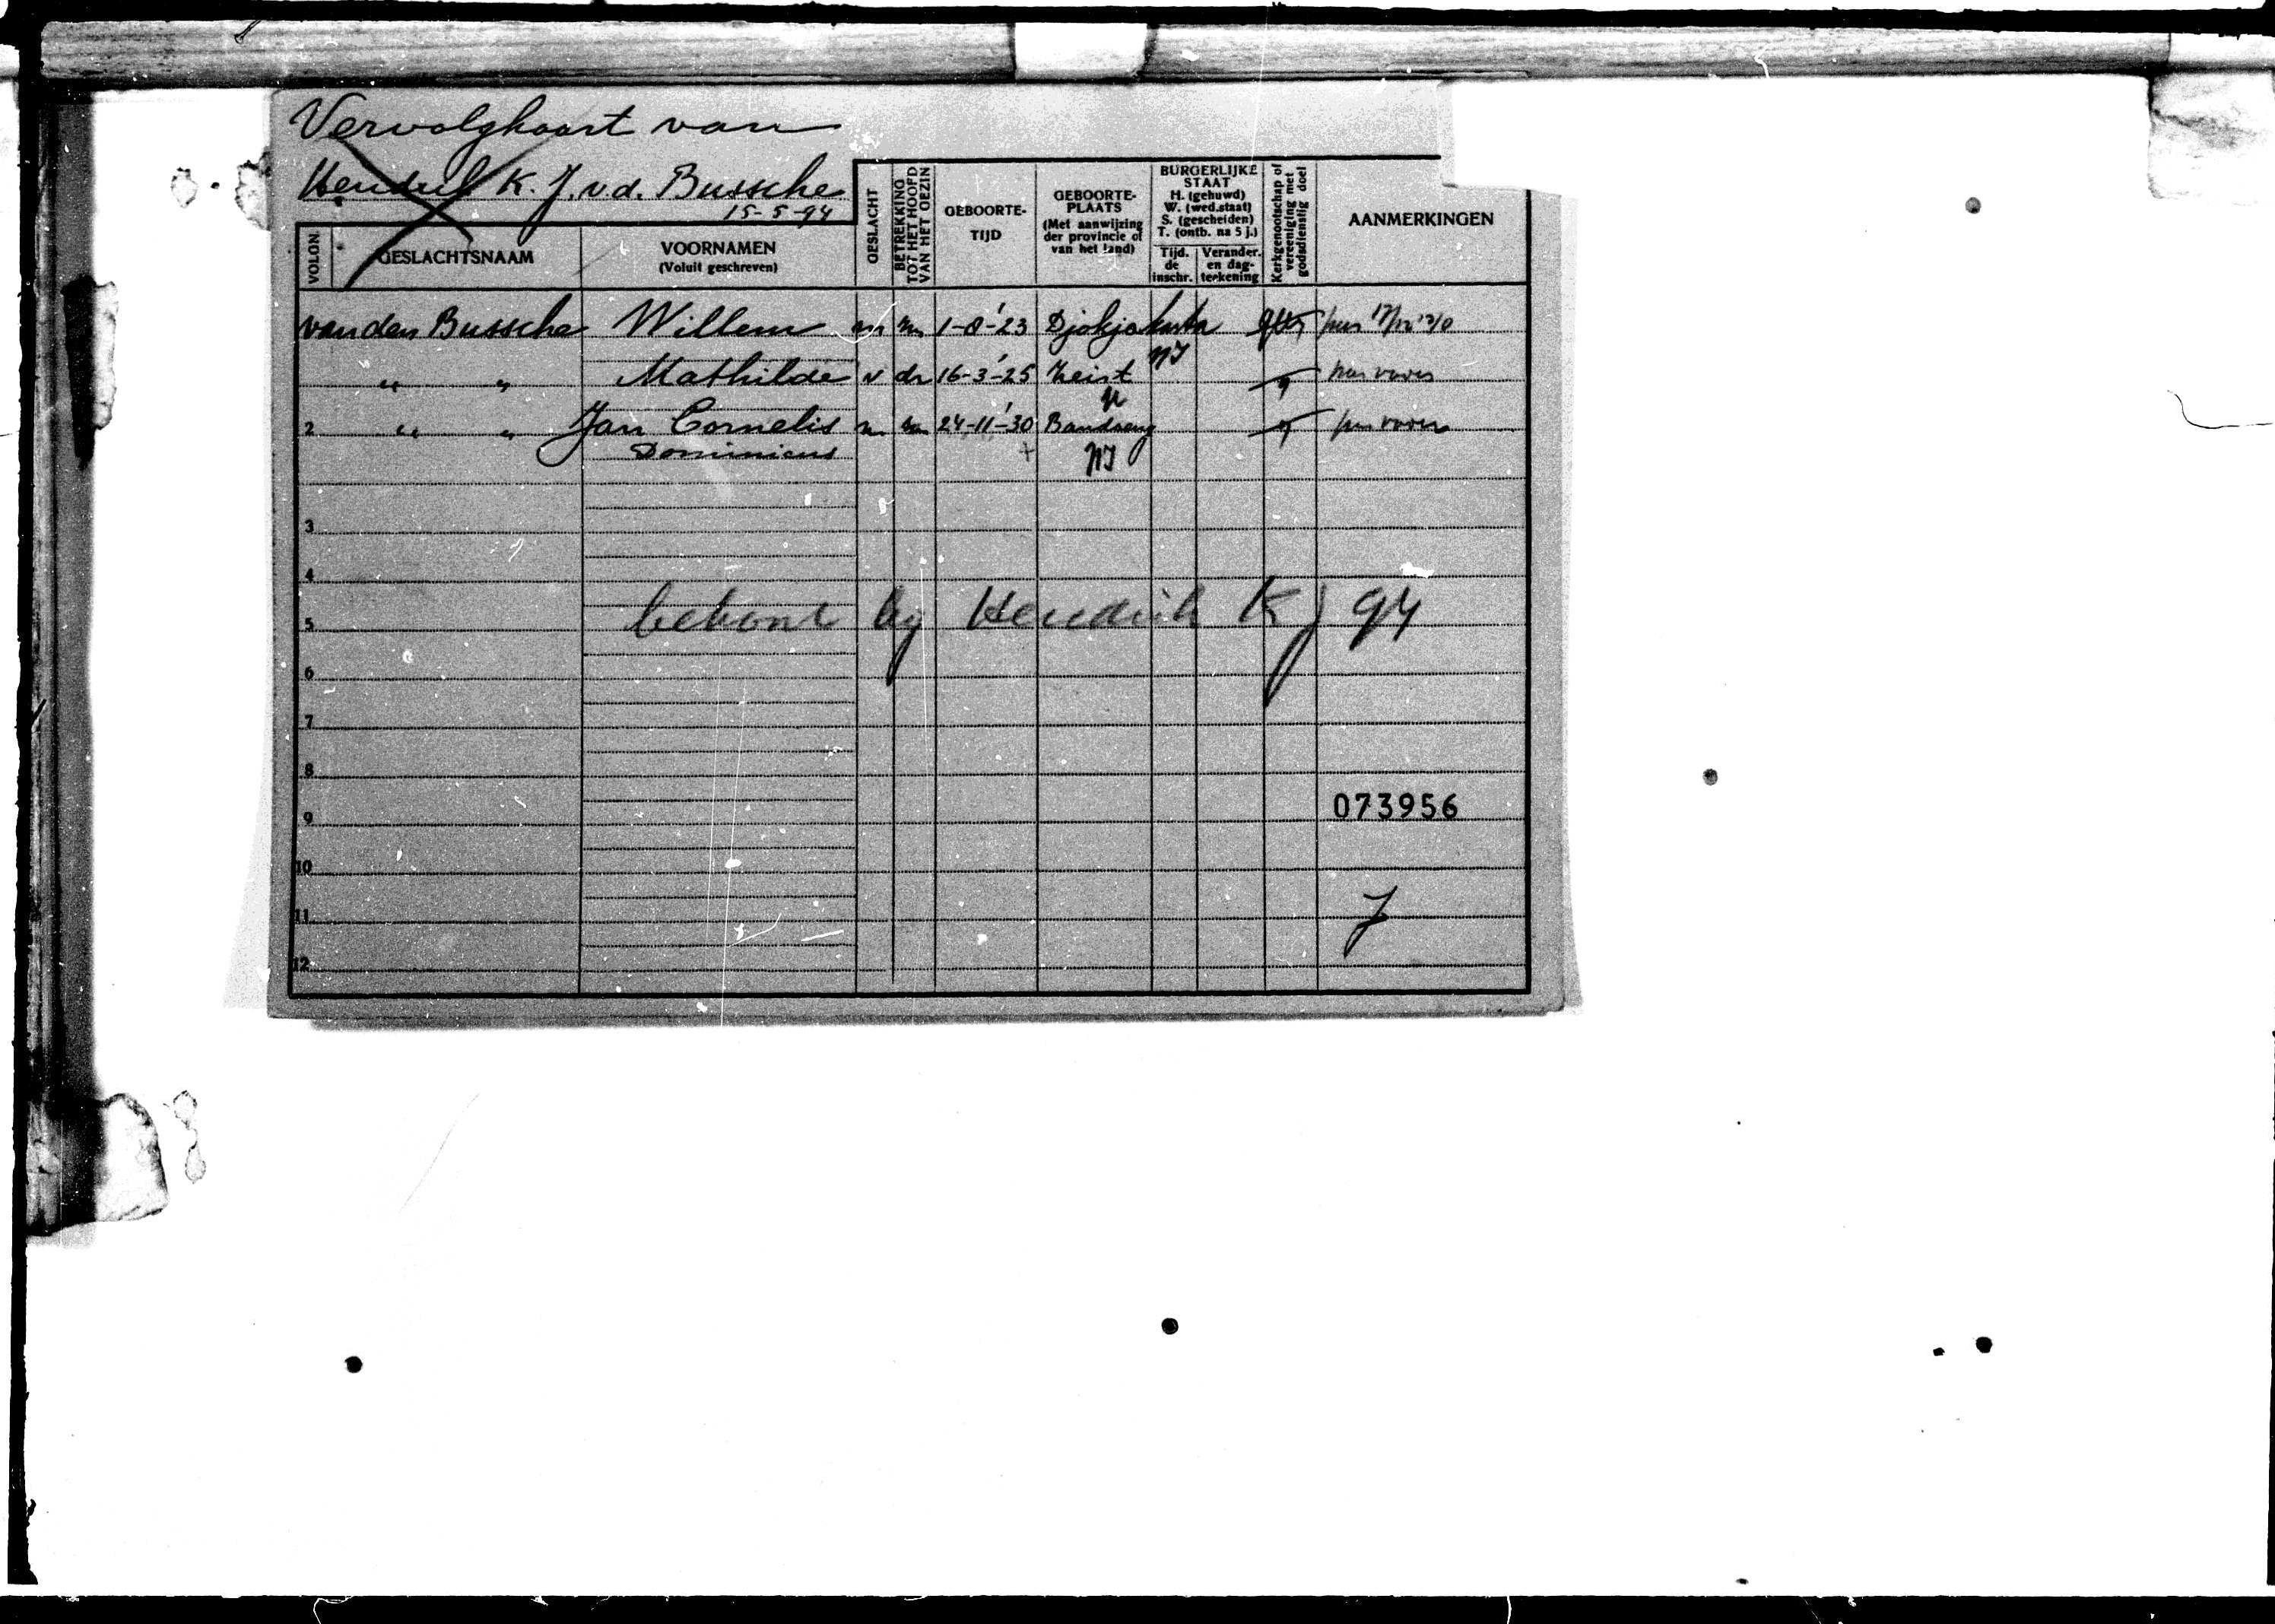 Vervolgkaart van
Hendrik K. J. v.d. Bussche
15-5-94
VOLGN.
GESLACHTSNAAM
VOORNAMEN
(Voluit geschreven)
GESLACHT
BETREKKING
TOT HET HOOFD
VAN HET GEZIN
GEBOORTE-
TIJD
GEBOORTE-
PLAATS
(Met aanwijzing
der provincie of
van het land)
BURGERLIJKE
STAAT
H. (gehuwd)
W. (wed.staat)
S. (gescheiden)
T. (ontb. na 5 j.)
Tijd.
de
inschr.
Verander.
en dag-
teekening
Kerkgenootschap of
vereeniging met
godsdienstig doel
AANMERKINGEN
van den Bussche Willem m zn 1-8-'23 Djokjakarta
NI
" " Mathilde v dr 16-3-'25 Zeist
2 " " Jan Cornelis m zn 24-11-'30 Bandoeng
Dominicus NI
3
4
behoort bij Hendrik K J 94
5
6
7
8
073956
9
10
11
12